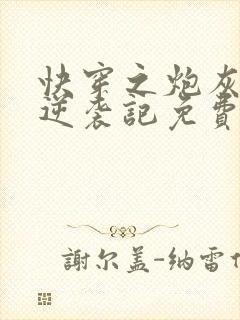 快穿之炮灰
逆袭記免費
謝尔盖-纳雷